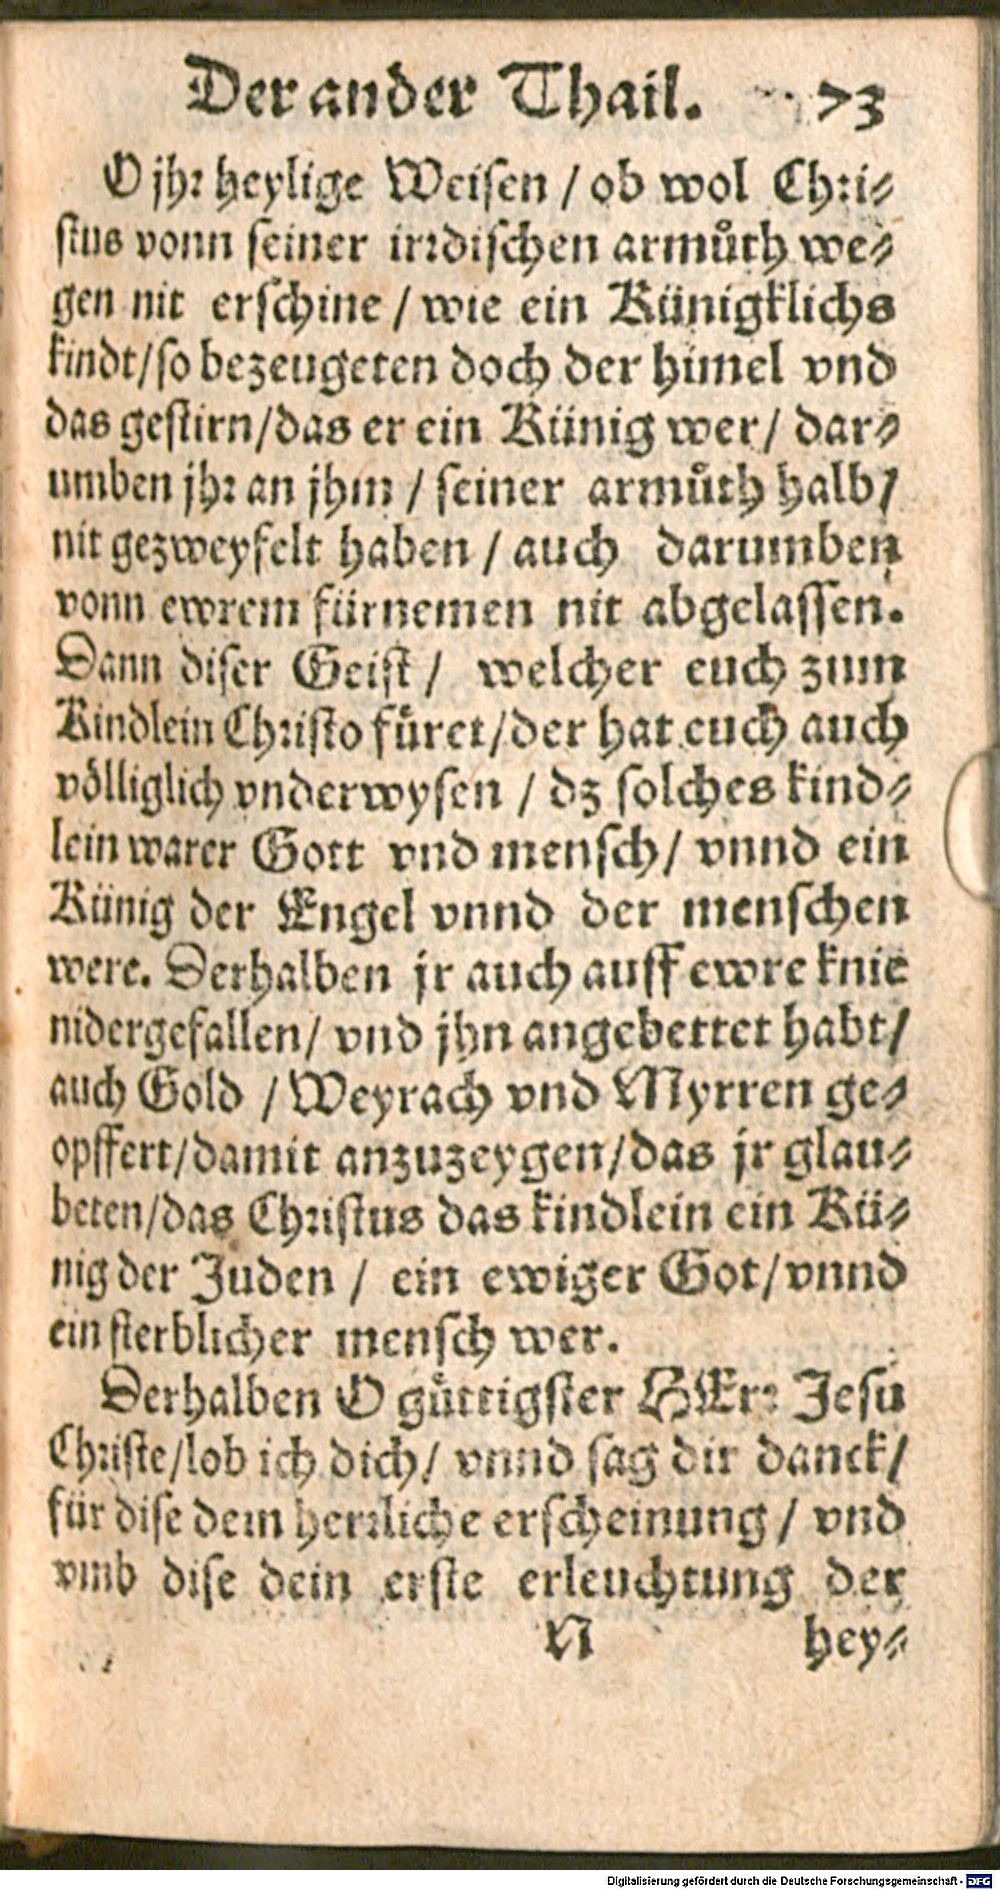 Der ander Thail. 73
O jhr heylige Weisen / ob wol Chri-
stus vonn seiner irrdischen armůth we-
gen nit erschine / wie ein Künigklichs
kindt/so bezeugeten doch der himel vnd
das gestirn/das er ein Künig wer/ dar-
umben jhr an jhm / seiner armůth halb/
nit gezweyfelt haben / auch darumben
vonn ewrem fürnemen nit abgelassen.
Dann diser Geist / welcher euch zum
Kindlein Christo füret/der hat euch auch
völliglich vnderwysen / dz solches kind-
lein warer Gott vnd mensch/ vnnd ein
Künig der Engel vnnd der menschen
were. Derhalben jr auch auff ewre knie
nidergefallen/ vnd jhn angebettet habt/
auch Gold / Weyrach vnd Myrren ge-
opffert/damit anzuzeygen/das jr glau-
beten/das Christus das kindlein ein Kü-
nig der Juden / ein ewiger Got/vnnd
ein sterblicher mensch wer.
Derhalben O güttigster HErr Jesu
Christe/lob ich dich/ vnnd sag dir danck/
für dise dein herrliche erscheinung / vnd
vmb dise dein erste erleuchtung der
N hey-
Digitalisierung gefördert durch die Deutsche Forschungsgemeinschaft - DFG